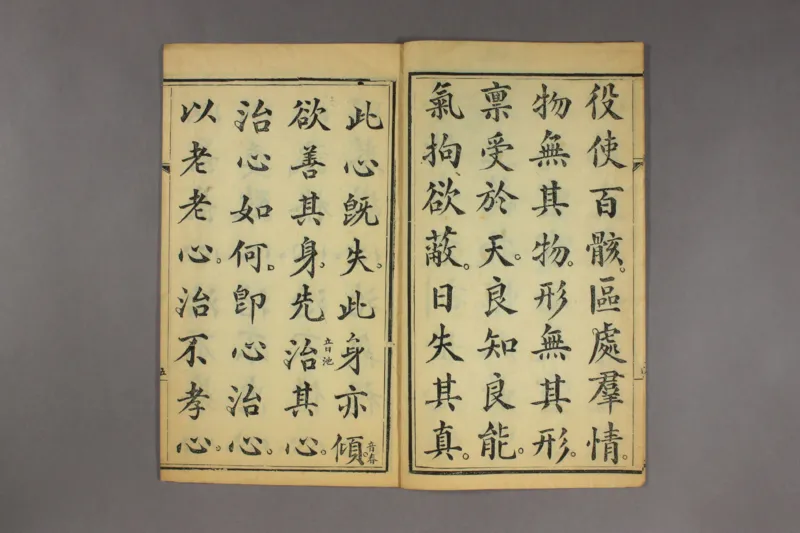 役使百骸。區處羣情。
物無其物。形無其形。
禀受於天。良知良能。
氣拘欲蔽。日失其真。
此心旣失。此身亦傾。音春
欲善其身。先治音池其心。
治心如何。卽心治心。
以老老心。治不孝心。
五